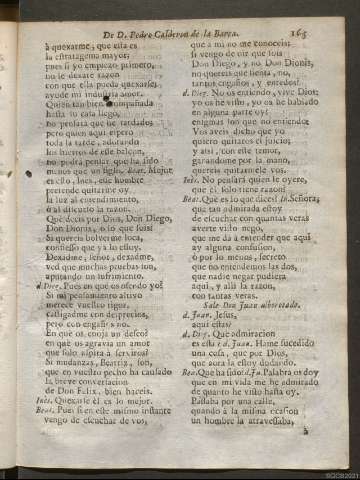 De D. Pedro Calderon de la Barca. 165
à quexarme, que esta es
la estratagema mayor;
pues si yo empiezo primero,
no le dexarè razon
con que ella pueda quexarse:
ayude mi industria amor.
Quien tan bien acompañada
hasta su casa llegò,
no pensarà que he tardado
pero quien aqui esperò
toda la tarde, adorando
los hierros de esse balcon,
no podrà pensar que ha sido
menos que un siglo. Beat. Mejor
es esto, Ines, que hombre
pretende quitarte oy
la luz al entendimiento,
ò al discurso la razon.
Què decis por Dios, Don Diego,
Don Dionis, ò lo que sois?
Si quereis bolverme loca,
confiesso que yà lo estoy.
Dexadme, señor, dexadme,
ved que muchas pruebas son,
apurando un sufrimiento.
d.Dieg. Pues en què os ofendo yo?
Si mi pensamiento altivo
merece vuestro rigor,
castigadme con desprecios,
pero con engaños no.
En què os enoja un deseo?
en què os agravia un amor
que solo aspira à serviros?
Si mudanzas, Beatriz, son,
que en vuestro pecho ha causado
la breve conversacion
de Don Felix, bien haceis.
Inès. Quexarse èl es lo mejor.
Beat. Pues si en este mismo instante
vengo de escuchar de vos,
que à mi no me conoceis:
si vengo de oir que sois
Don Diego, y no Don Dionis,
no quereis que sienta, no,
tantos engaños, y enredos?
d. Dieg. No os entiendo, vive Dios;
yo os he visto, yo os he hablado
en alguna parte oy?
enigmas son que no entiendo:
Vos aveis dicho que yo
quiero quitaros el juicio;
y assi, con este temor,
ganandome por la mano,
quereis quitarmele vos.
Inès. No pensarà quien le oyere,
que èl solo tiene razon?
Beat. Què es lo que dices? In. Señora,
que tan admirada estoy
de escuchar con quantas veras
averte visto negò,
que me dà à entender que aqui
ay alguna confusion,
ò por lo menos, secreto
que no entendemos las dos,
que nadie negar pudiera
aqui, y alli la razon,
con tantas veras.
Sale Don Juan alborotado.
d. Juan. Jesus,
aqui estás?
d. Dieg. Què admiracion
es esta? d. Juan. Hame sucedido
una cosa, que por Dios,
que aora la estoy dudando.
Bea. Què ha sido? d.Ju. Palabra os doy
que en mi vida me he admirado
de quanto he visto hasta oy.
Passaba por una calle,
quando à la misma ocasion
un hombre la atravessaba,
à